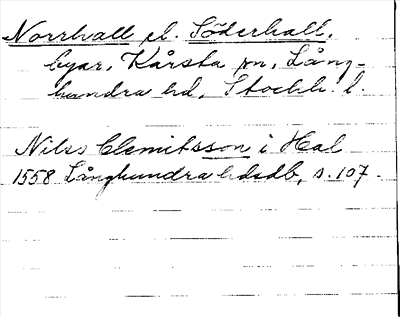 Norrhall el. Söderhall,
byar, Kårsta sn, Lång-
hundra hd, Stockh. l.
Nils Clemitsson i Hal
1558 Långhundra hdsdb, s. 107.